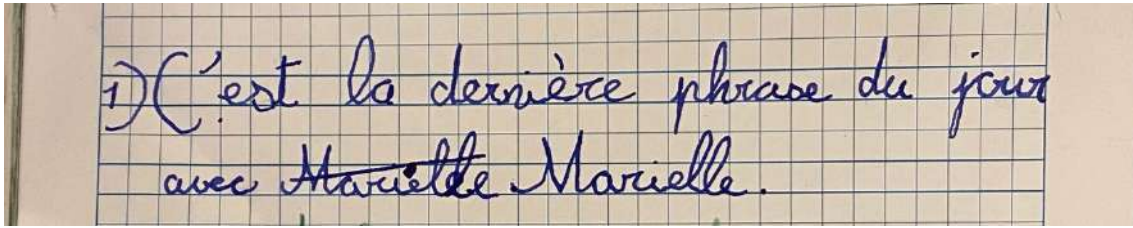 1) C'est la dernière phrase du jour
avec Marielle Marielle.